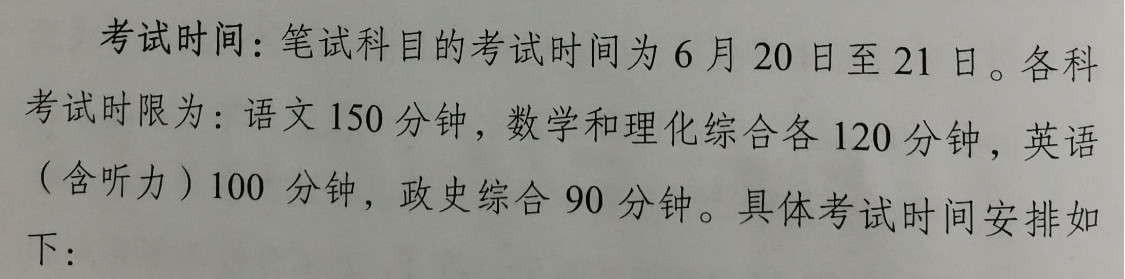 考试时间：笔试科目的考试时间为 6 月 20 日至 21 日。各科
考试时限为：语文 150 分钟，数学和理化综合各 120 分钟，英语
（含听力）100 分钟，政史综合 90 分钟。具体考试时间安排如
下：